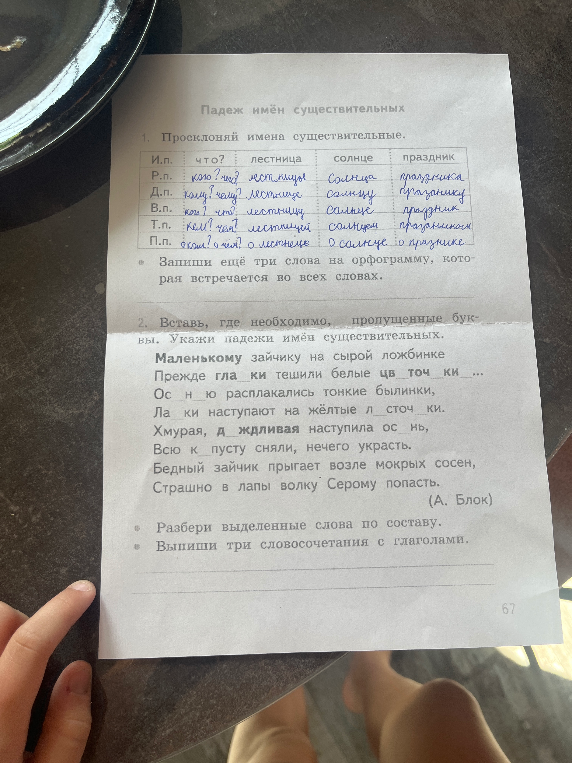 Падеж имён существительных
1. Просклоняй имена существительные.
И.п. что? лестница солнце праздник
Р.п. кого? чего? лестницы солнца праздника
Д.п. кому? чему? лестнице солнцу празднику
В.п. кого? что? лестницу солнце праздник
Т.п. кем? чем? лестницей солнцем праздником
П.п. о ком? о чём? о лестнеце о солнце о празнике
• Запиши ещё три слова на орфограмму, кото-
рая встречается во всех словах.
2. Вставь, где необходимо, пропущенные бук-
вы. Укажи падежи имён существительных.
Маленькому зайчику на сырой ложбинке
Прежде гла_ки тешили белые цв_точ_ки_...
Ос_н_ю расплакались тонкие былинки,
Ла_ки наступают на жёлтые л_сточ_ки.
Хмурая, д_ждливая наступила ос_нь,
Всю к_пусту сняли, нечего украсть.
Бедный зайчик прыгает возле мокрых сосен,
Страшно в лапы волку Серому попасть.
(А. Блок)
• Разбери выделенные слова по составу.
• Выпиши три словосочетания с глаголами.
67